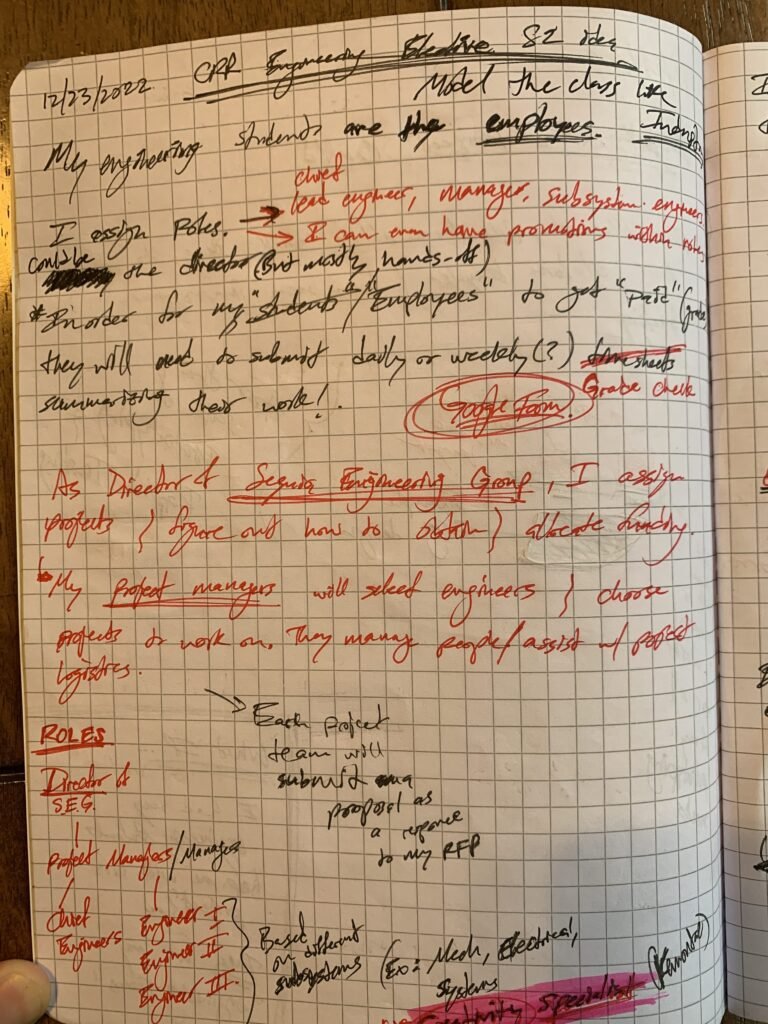 12/23/2022 CPR Engineering Elective S2 idea
Model the class like
My engineering students are the employees.
chief
lead engineer, manager, subsystem engineers
I assign roles. → I can even have promotions within roles
could be
the director (But mostly hands-off)
* In order for my "students"/"Employees" to get "paid" (grade)
they will need to submit daily or weekly(?) timesheets
summarizing their work! Google Form. Grade check
As Director of Sequoia Engineering Group, I assign
projects } figure out how to obtain } allocate funding.
My project managers will select engineers } choose
projects to work on. They manage people/assist w/ project
logistics.
→ Each project
team will
submit a
proposal as
a response
to my RFP
ROLES
Director of
S.E.G.
Project Managers/Manager
Chief Engineer I
Engineers Engineer II
Engineer III
Based
on different
subsystems
(Ex: Mech, Electrical,
systems
Creativity Specialist